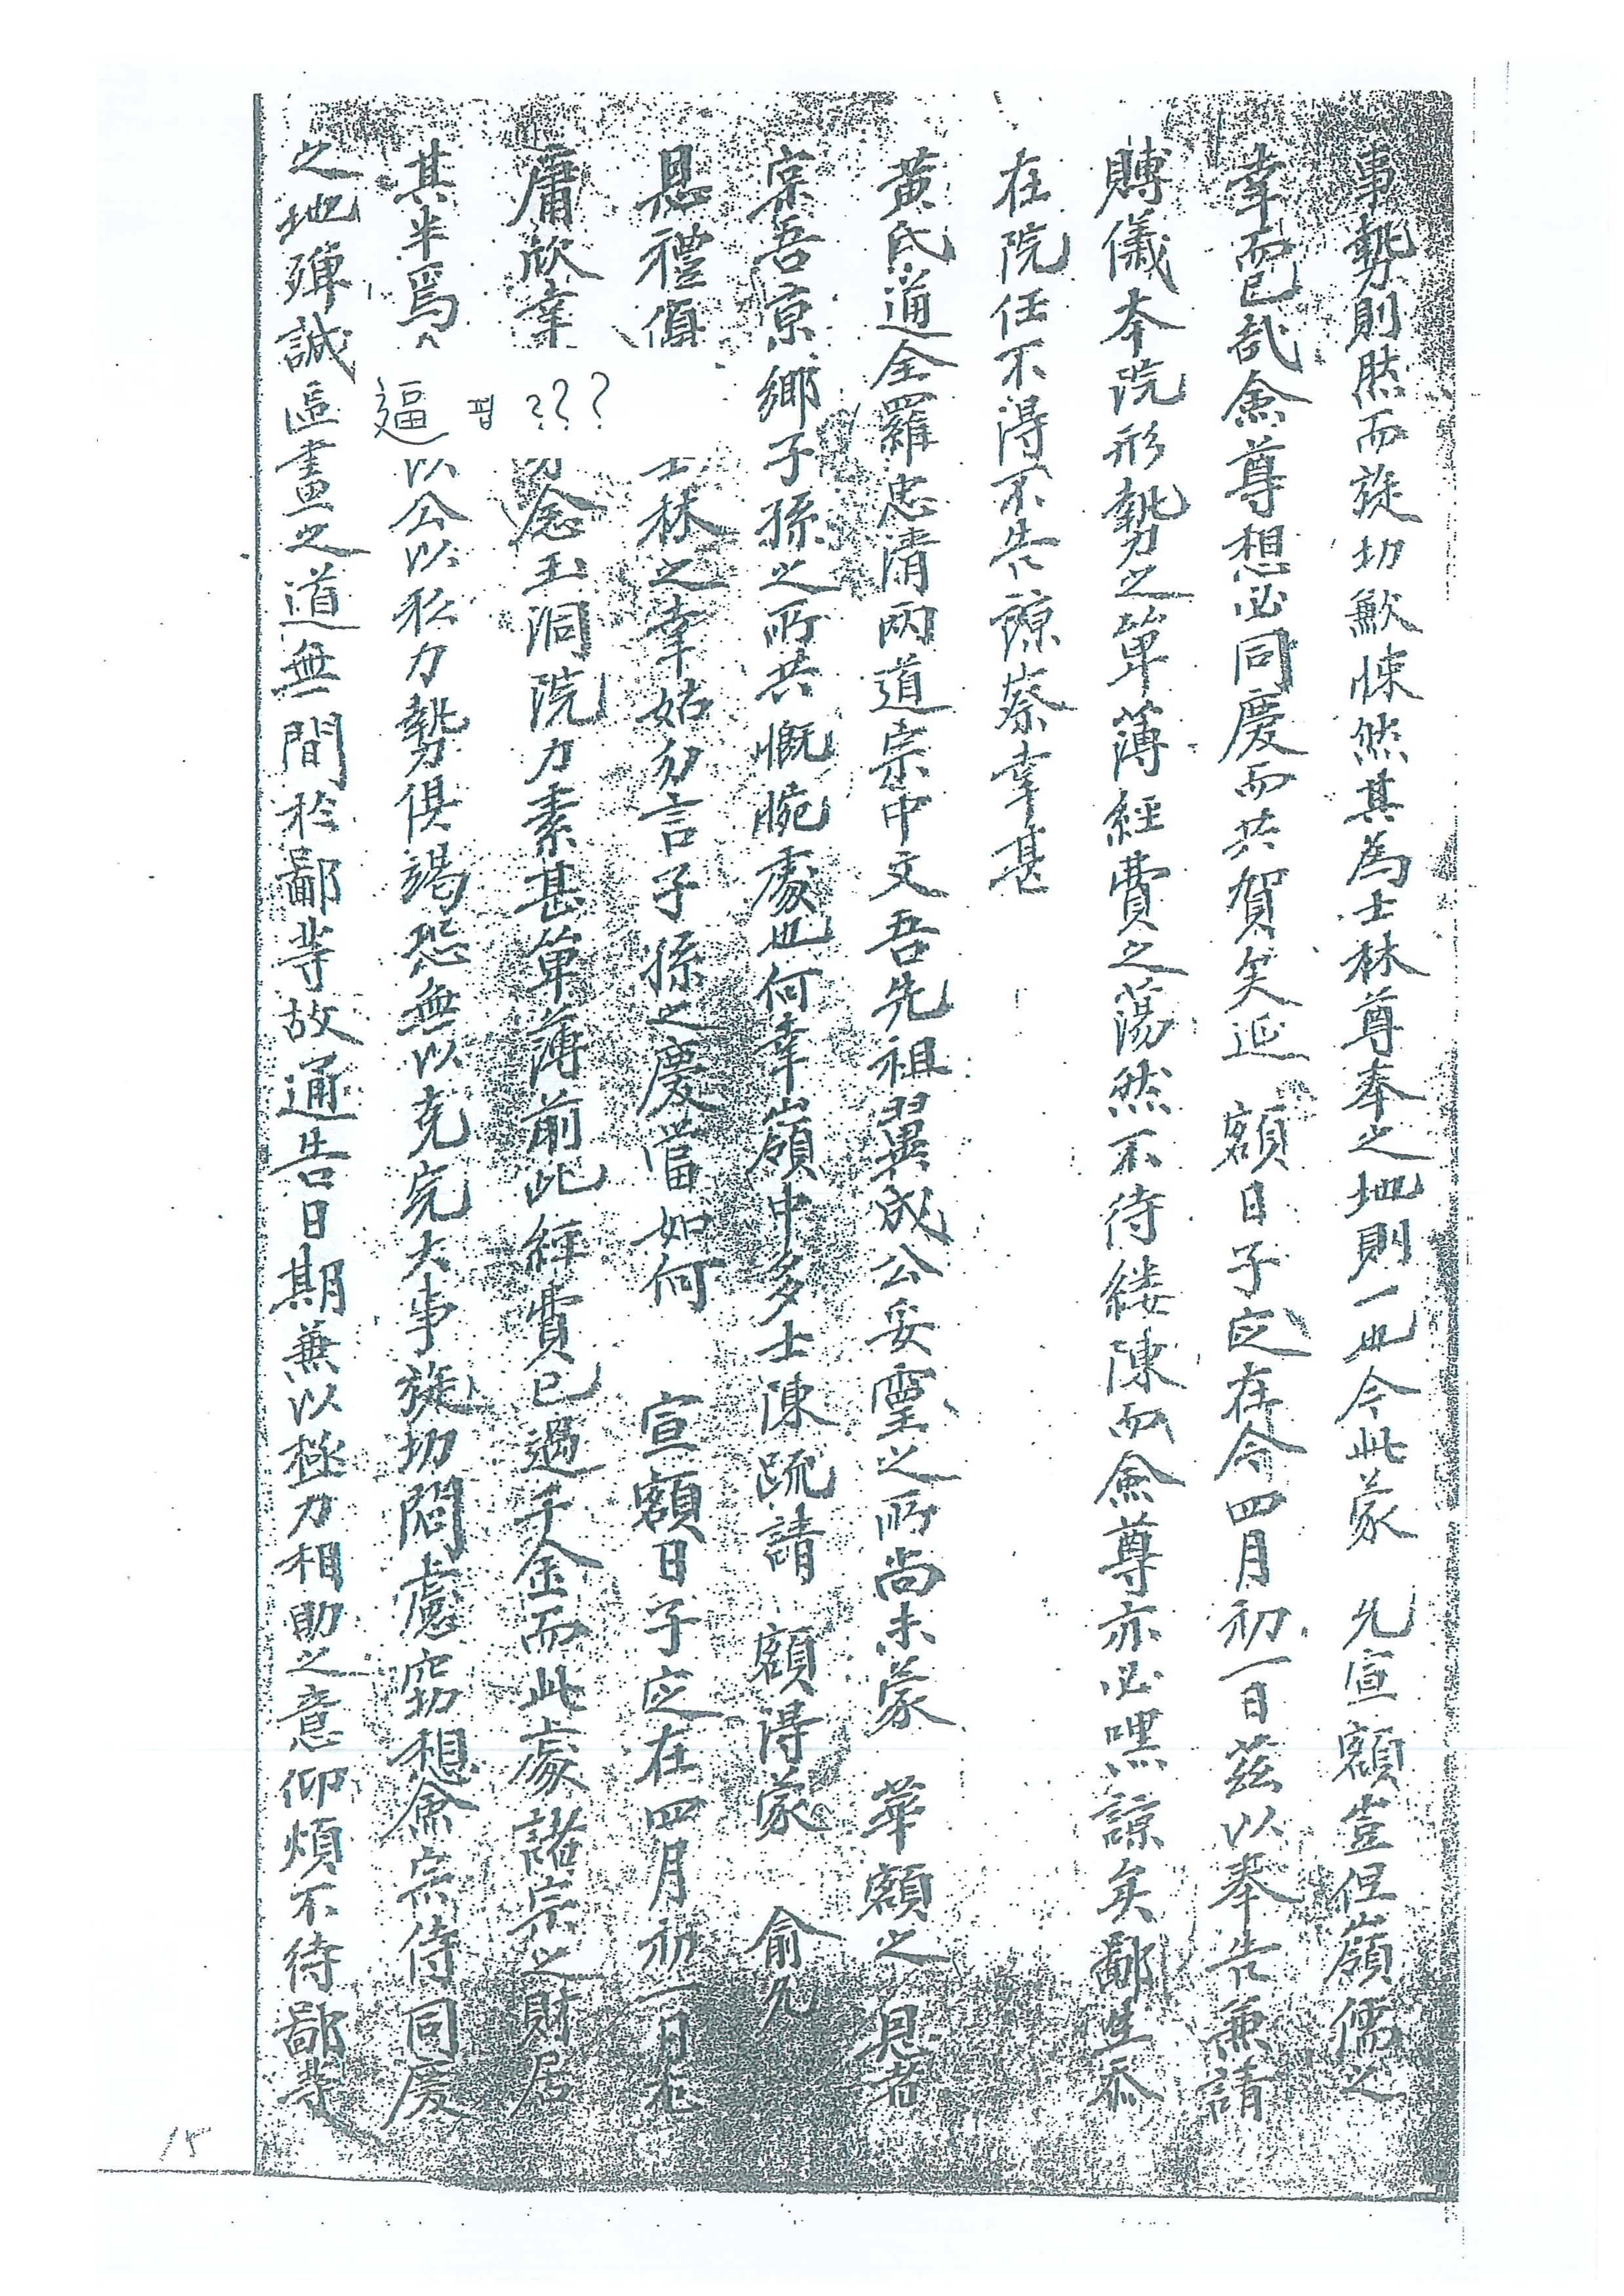 事勢則然而旋切歉悚然其為士林尊奉之地則一也今此蒙 允宣額豈但嶺儒之
幸而已哉僉尊想必同慶而共賀矣延 額日子应在今四月初一日茲以奉告兼請
賻儀本院形勢之簞薄經費之蕩然不待縷陳而僉尊亦必嘿諒矣鄙生忝
在院任不得不告諒察幸甚
黃氏通全羅忠清兩道宗中文吾先祖翼成公妥靈之所尚未蒙 華額之恩者
宗吾京鄉子孫之所共慨惋處也何幸嶺中多士陳疏請 額得蒙 俞允
恩禮 士林之幸姑勿言子孫之慶當如何 宣額日子应在四月初一日
庸欣幸 ??? 念玉洞院力素甚簞薄前此經費已過千金而此處諸宗之財居
其半焉 逼 핍 以公以私力勢俱竭恐無以克完大事旋切悶慮窃想僉宗侍同慶
之地殫誠區畫之道無間於鄙等故通告日期兼以極力相助之意仰煩不待鄙等
15